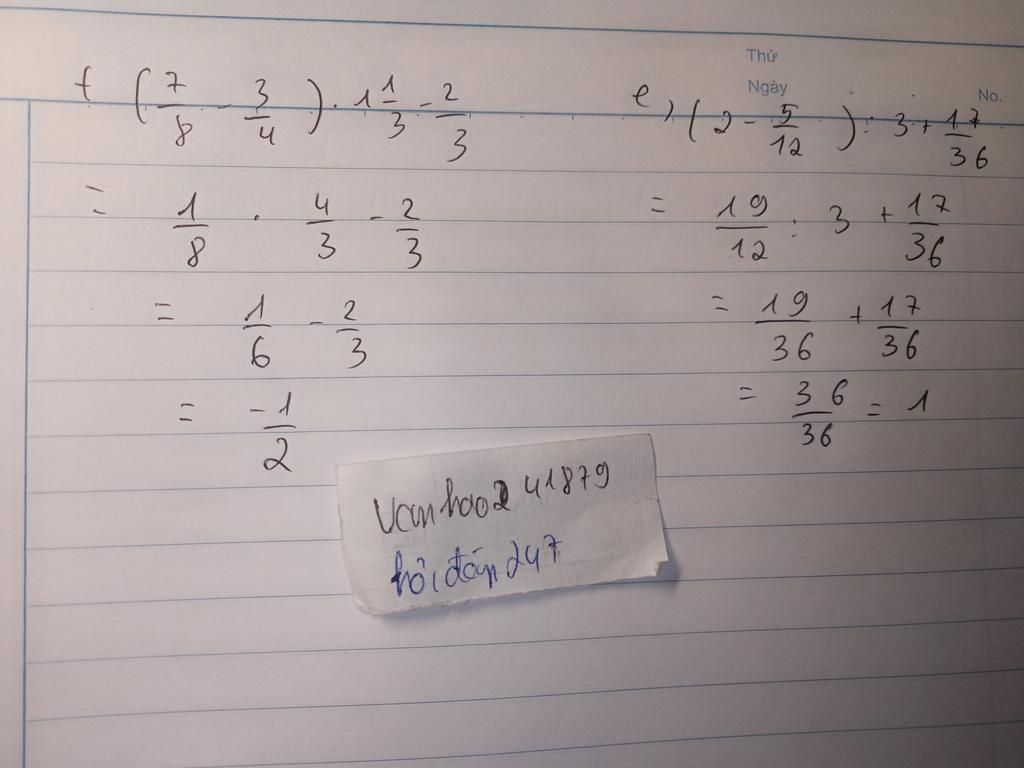 Thứ
Ngày
No.
f (7/8 - 3/4) . 1 1/3 - 2/3
= 1/8 . 4/3 - 2/3
= 1/6 - 2/3
= -1/2
e, (2 - 5/12) : 3 + 17/36
= 19/12 : 3 + 17/36
= 19/36 + 17/36
= 36/36 = 1
Vanhao2 41879
hỏi đáp 247